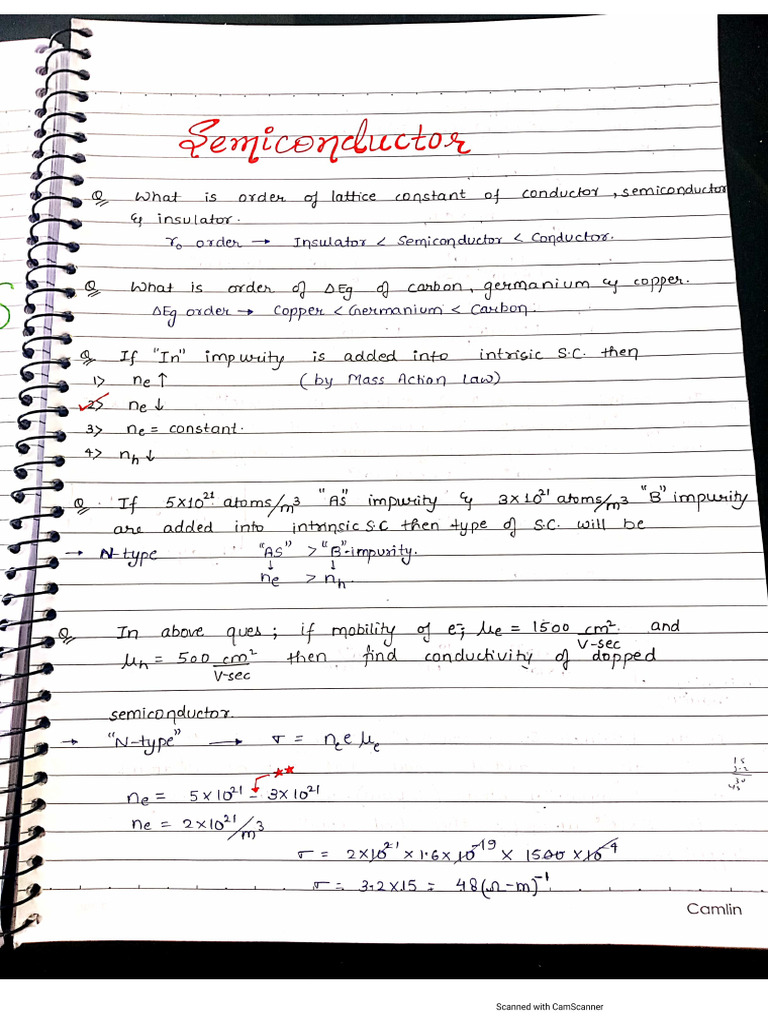 Semiconductor
Q What is order of lattice constant of conductor, semiconductor
& insulator.
r₀ order → Insulator < Semiconductor < Conductor.
Q What is order of ΔEg of carbon, germanium & copper.
ΔEg order → Copper < Germanium < Carbon.
Q If "In" impurity is added into intrisic S.C. then
1> ne ↑ (by Mass Action Law)
2> ne ↓
3> ne = constant.
4> nh ↓
Q. If 5×10²¹ atoms/m³ "As" impurity & 3×10²¹ atoms/m³ "B" impurity
are added into intrinsic S.C then type of S.C. will be
→ N-type "AS" > "B"-impurity.
↓ ↓
ne > nh.
Q In above ques; if mobility of e⁻; μe = 1500 cm²/V-sec and
μh = 500 cm²/V-sec then find conductivity of dopped
semiconductor.
→ "N-type" → σ = ne e μe
ne = 5×10²¹ - 3×10²¹
ne = 2×10²¹/m³
σ = 2×10²¹ × 1.6×10⁻¹⁹ × 1500 × 10⁻⁴
σ = 3.2×15 = 48(Ω-m)⁻¹
Camlin
Scanned with CamScanner